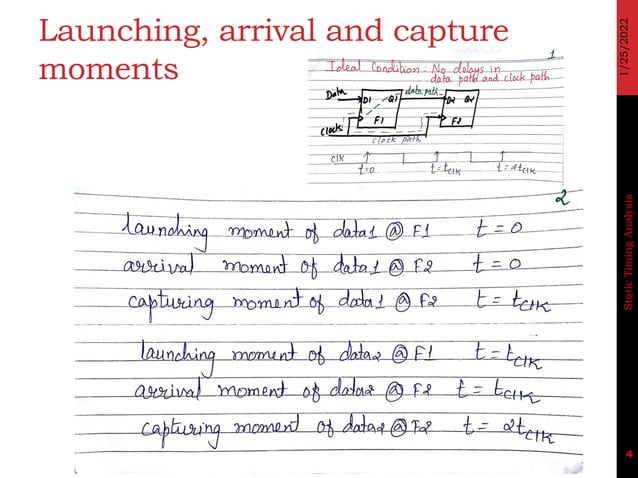 Launching, arrival and capture
moments
1/25/2022
1
Ideal Condition: No delays in
data path and clock path
Data
D1 Q1
data path
D2 Q2
F1
F2
Clock
clock path
clk
t=0
t=tclk
t=2tclk
2
launching moment of data1 @ F1 t = 0
arrival moment of data1 @ F2 t = 0
capturing moment of data1 @ F2 t = tclk
launching moment of data2 @ F1 t = tclk
arrival moment of data2 @ F2 t = tclk
capturing moment of data2 @ F2 t = 2tclk
Static Timing Analysis
4